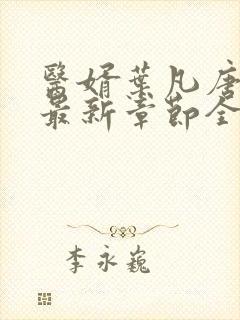 醫婿葉凡唐
最新章節全
李永巍